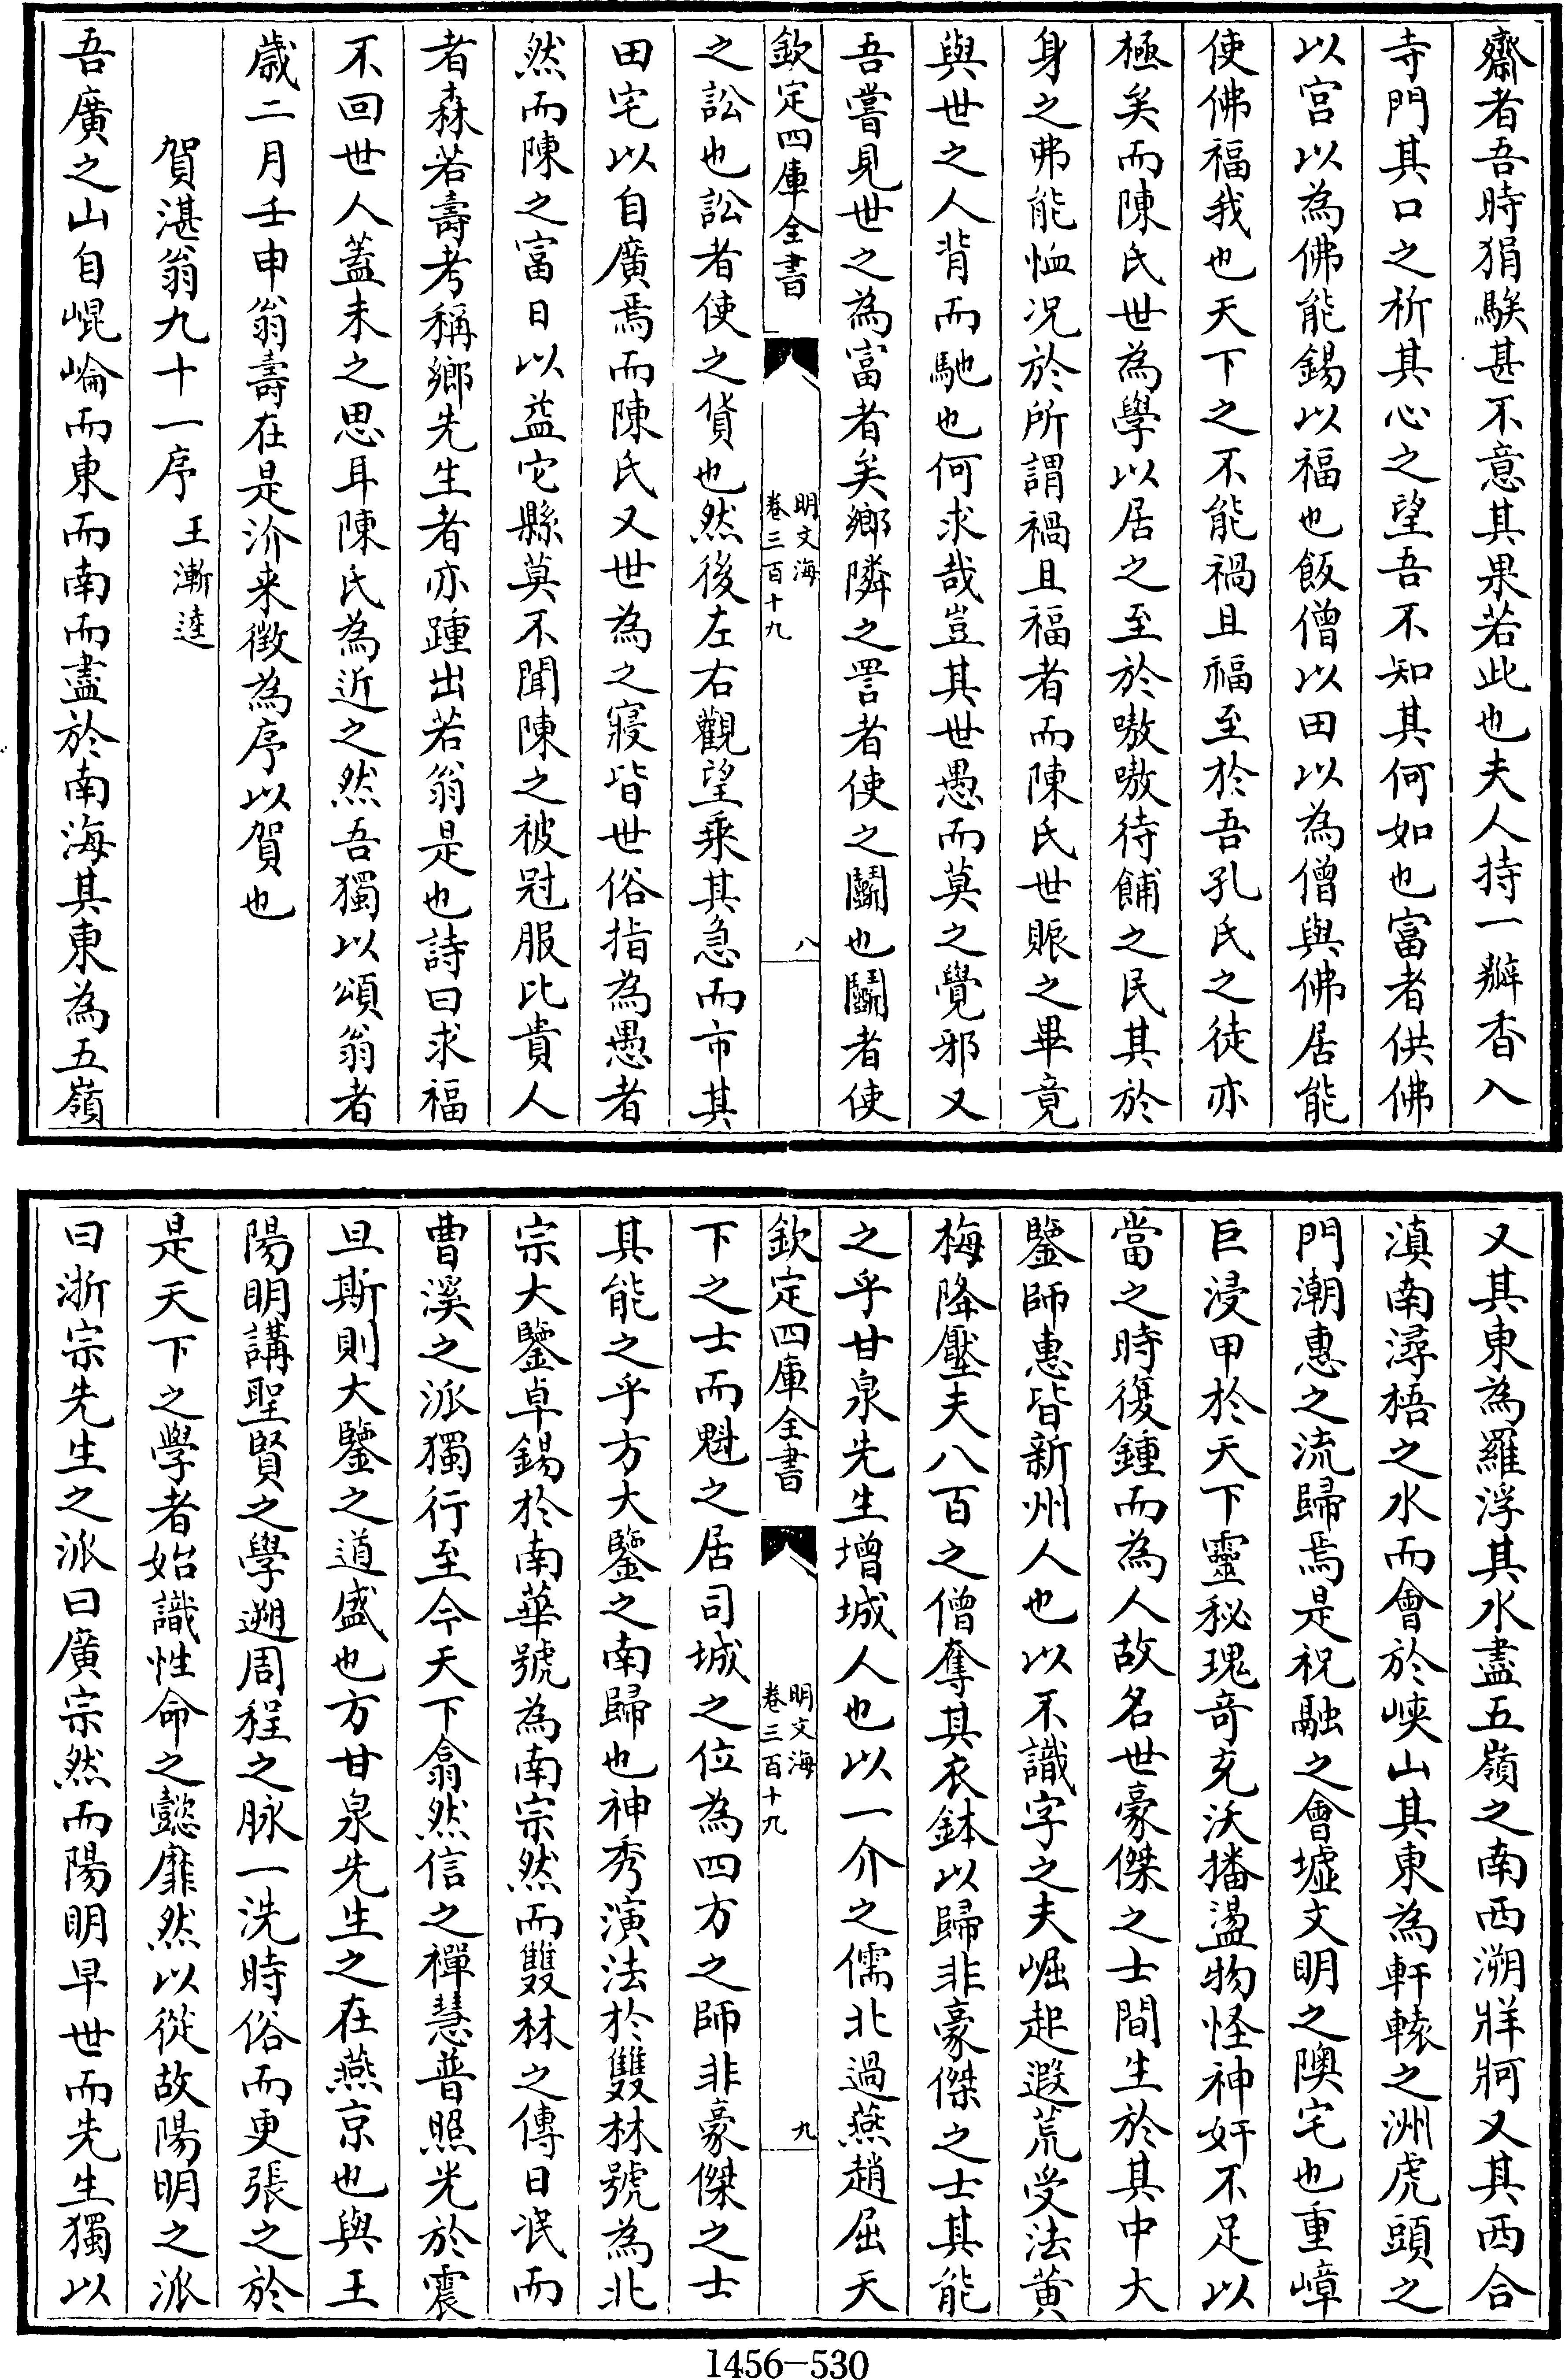 齋者吾時狷騃甚不意其果若此也夫人持一瓣香入
寺門其口之祈其心之望吾不知其何如也富者供佛
以宫以為佛能錫以福也飯僧以田以為僧與佛居能
使佛福我也天下之不能禍且福至於吾孔氏之徒亦
極矣而陳氏世為學以居之至於嗷嗷待餔之民其於
身之弗能恤况於所謂禍且福者而陳氏世賑之畢竟
與世之人背而馳也何求哉豈其世愚而莫之覺邪又
吾嘗見世之為富者矣鄉隣之詈者使之鬭也鬭者使
欽定四庫全書
明文海
卷三百十九
八
之訟也訟者使之貨也然後左右觀望乘其急而市其
田宅以自廣焉而陳氏又世為之寢皆世俗指為愚者
然而陳之富日以益它縣莫不聞陳之被冠服比貴人
者森若壽考稱鄉先生者亦踵出若翁是也詩曰求福
不回世人蓋未之思耳陳氏為近之然吾獨以頌翁者
歲二月壬申翁壽在是汾来徵為序以賀也
賀湛翁九十一序 王漸逵
吾廣之山自崐崘而東而南而盡於南海其東為五嶺
又其東為羅浮其水盡五嶺之南西溯牂牁又其西合
滇南潯梧之水而會於峡山其東為軒轅之洲虎頭之
門潮惠之流歸焉是祝融之會墟文明之隩宅也重嶂
巨浸甲於天下靈秘瑰竒充沃播盪物怪神奸不足以
當之時復鍾而為人故名世豪傑之士間生於其中大
鑒師惠皆新州人也以不識字之夫崛起遐荒受法黄
梅降壓夫八百之僧奪其衣鉢以歸非豪傑之士其能
之乎甘泉先生增城人也以一介之儒北過燕趙屈天
欽定四庫全書
明文海
卷三百十九
九
下之士而魁之居司城之位為四方之師非豪傑之士
其能之乎方大鑒之南歸也神秀演法於雙林號為北
宗大鑒卓錫於南華號為南宗然而雙林之傳日泯而
曹溪之派獨行至今天下翕然信之禪慧普照光於震
旦斯則大鑒之道盛也方甘泉先生之在燕京也與王
陽明講聖賢之學遡周程之脉一洗時俗而更張之於
是天下之學者始識性命之懿靡然以從故陽明之派
曰浙宗先生之派曰廣宗然而陽明早世而先生獨以
1456-530